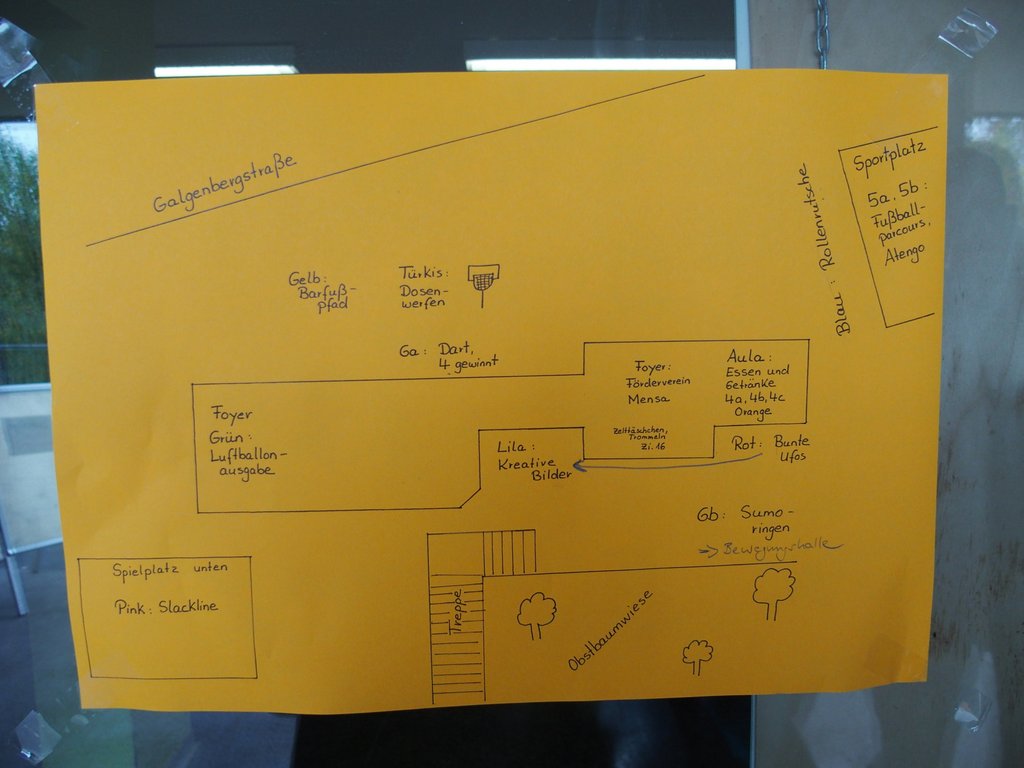 Galgenbergstraße
Sportplatz
5a, 5b :
Fußball-
parcours,
Atengo
Blau : Rollenrutsche
Gelb:
Barfuß-
pfad
Türkis:
Dosen-
werfen
Ga: Dart,
4 gewinnt
Foyer:
Förderverein
Mensa
Aula:
Essen und
Getränke
4a, 4b, 4c
Orange
Foyer
Grün:
Luftballon-
ausgabe
Zeittäschchen,
Trommeln
Zi. 16
Lila:
Kreative
Bilder
Rot: Bunte
Ufos
Gb: Sumo-
ringen
→ Bewegungshalle
Spielplatz unten
Pink: Slackline
Treppe
Obstbaumwiese